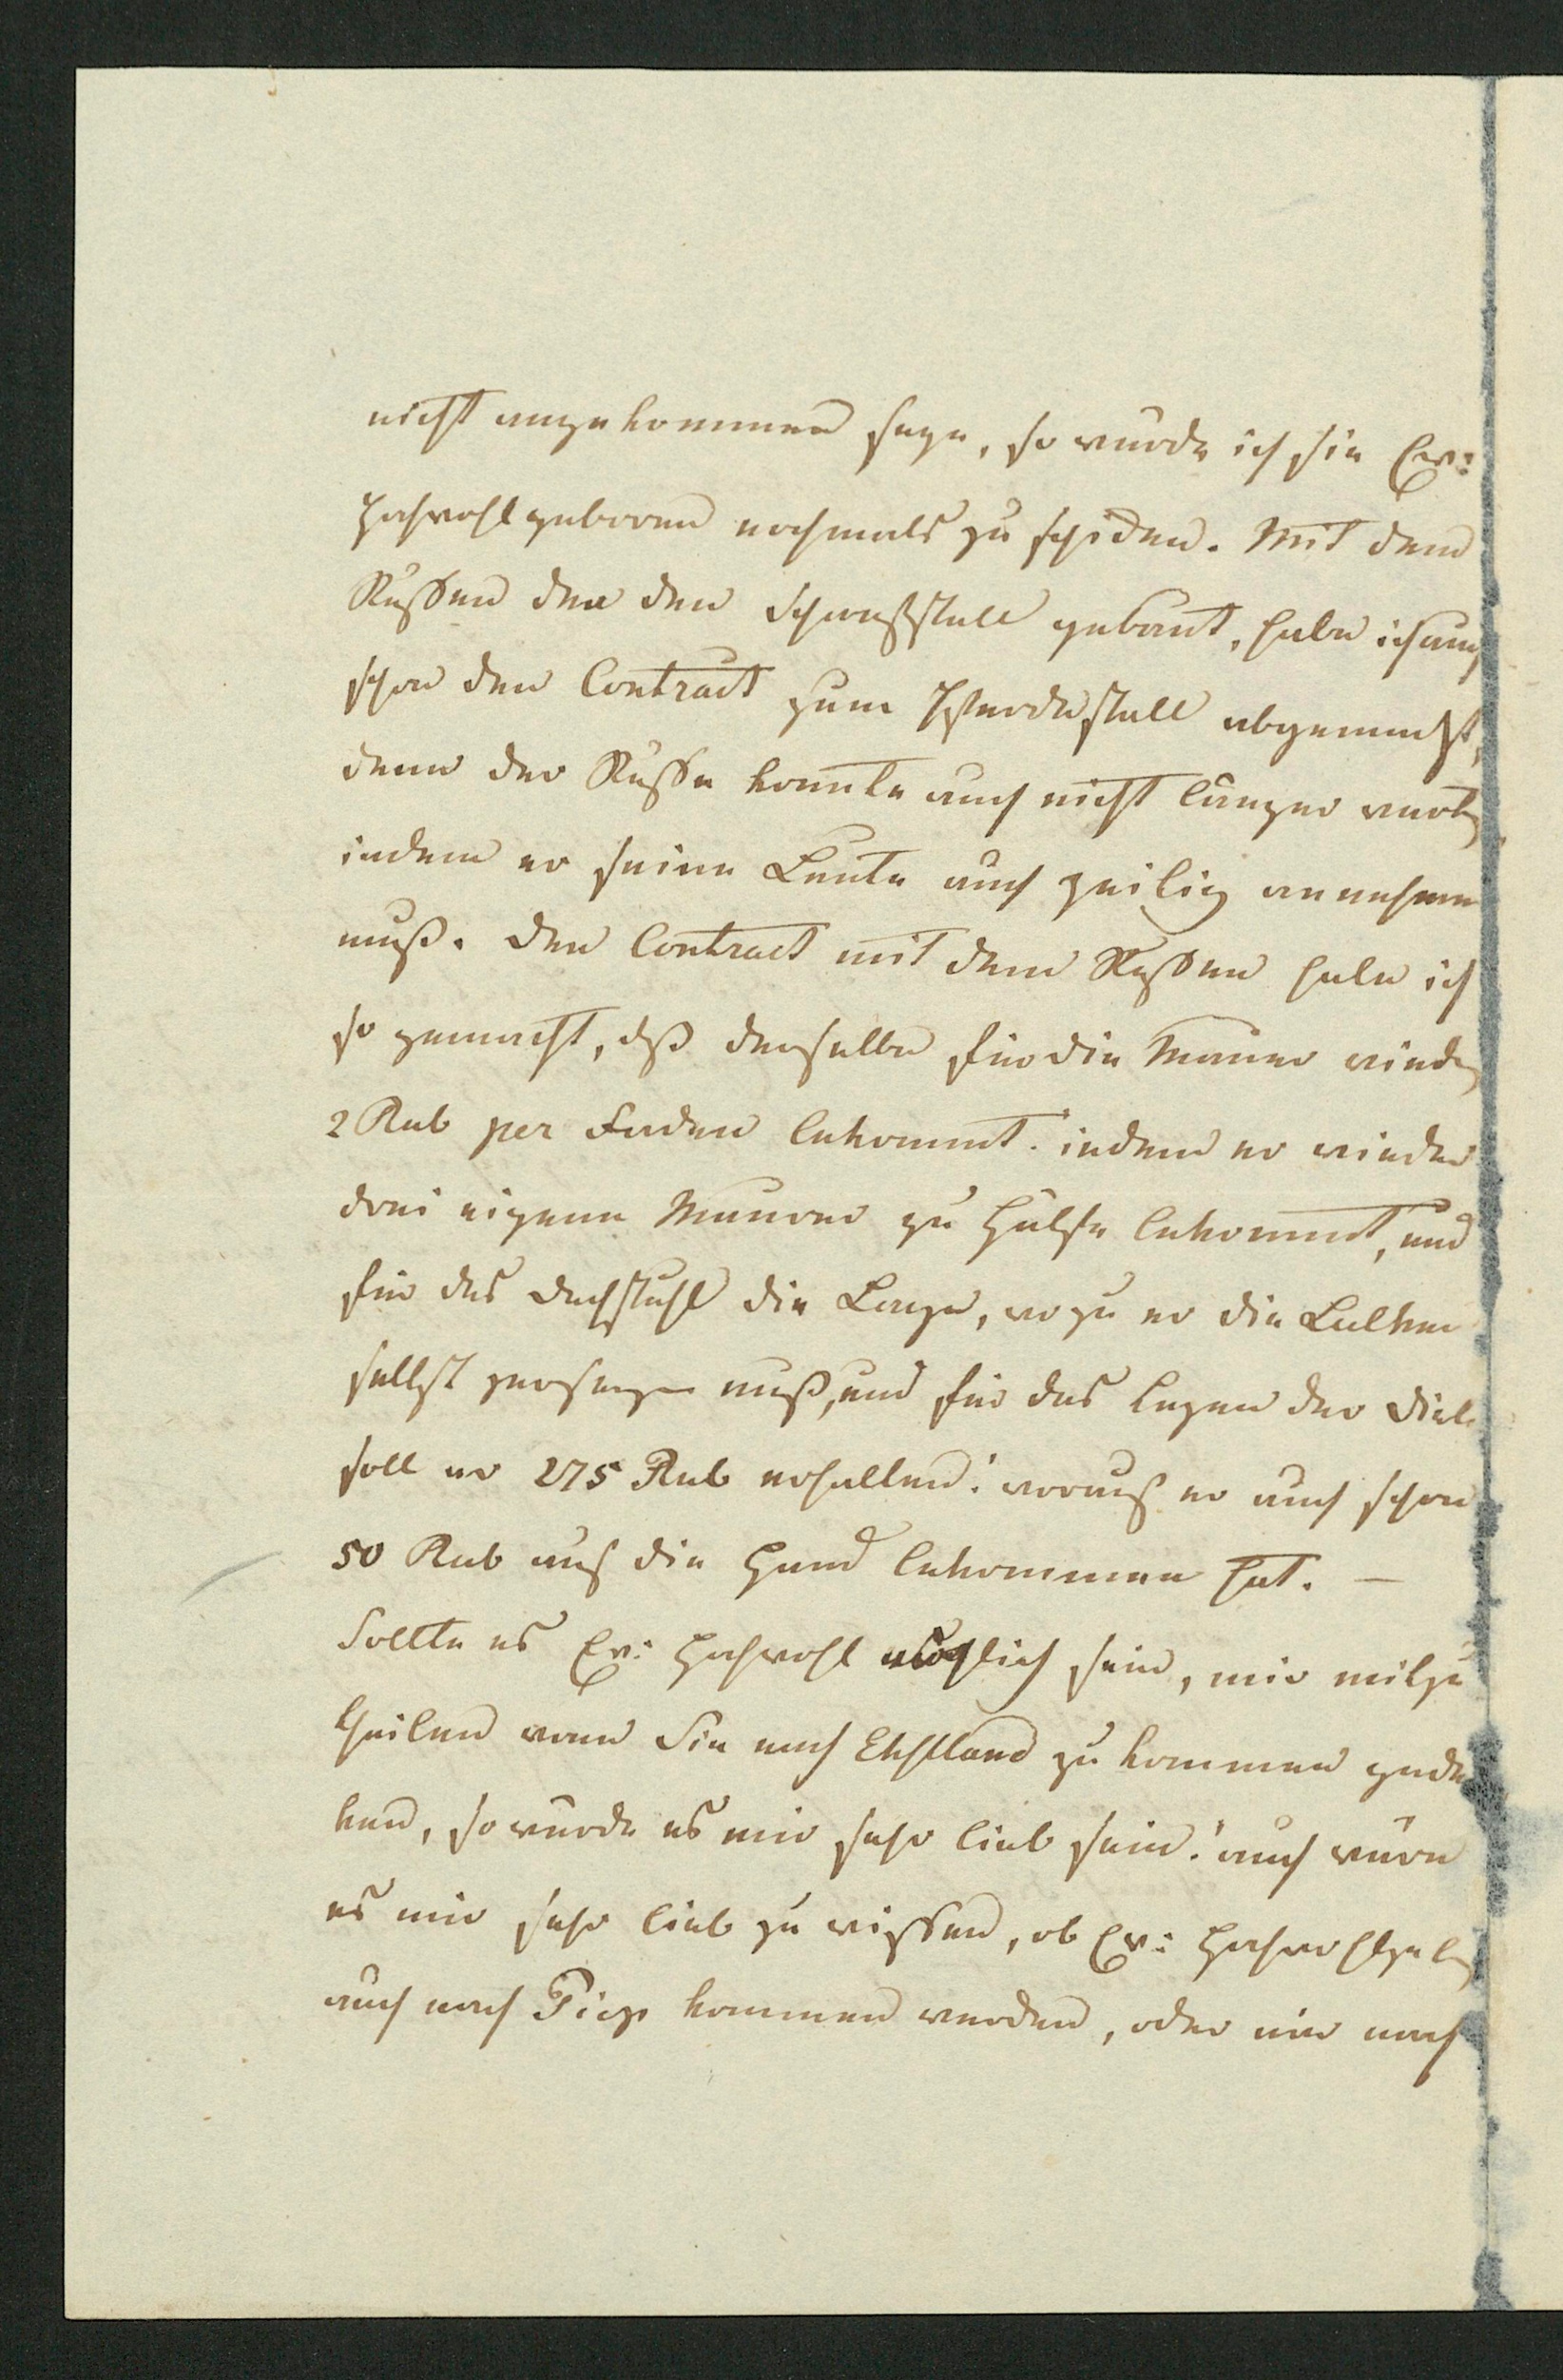 nicht angekommen seyn, so würde ich sie Ew:
Hochwohlgeboren nochmals zu schicken. Mit dem
Russen der den Schaafstall gebaut, habe ich auch
schon den Contract zum Pferdestall abgemacht,
denn der Russe konnte auch nicht länger warten
indem er seine Leute auch zeitig annehmen
muß. Den Contract mit dem Russen habe ich
so gemacht, dß derselbe für die Mauer wieder
2 Rub per Faden bekommt. indem er wieder
drei eigene Maurer zu Hülfe bekommt, und
für das Dachstuhl die Lage, wozu er die Balken
selbst zersägen muß, und für das Legen der Diele
soll er 275 Rub erhalten: worauf er auch schon
50 Rub auf die Hand bekommen hat. —
Sollte es Ew: Hochwohl möglich sein, mir mitzu
theilen wann Sie nach Ehstland zu kommen geden
ken, so würde es mir sehr lieb sein: auch wäre
es mir sehr lieb zu wissen, ob Ew: Hochwohlgeb
auch nach Piep kommen werden, oder nur nach